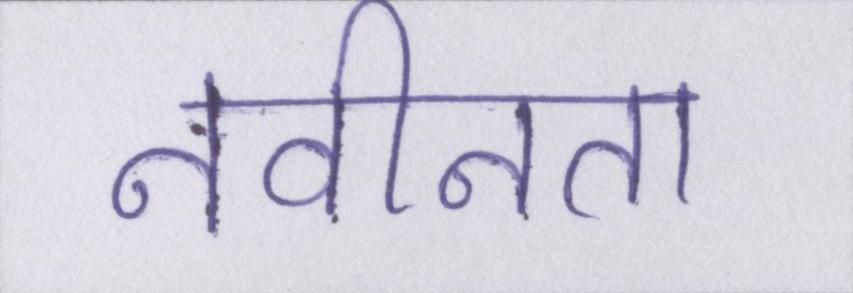 नवीनता